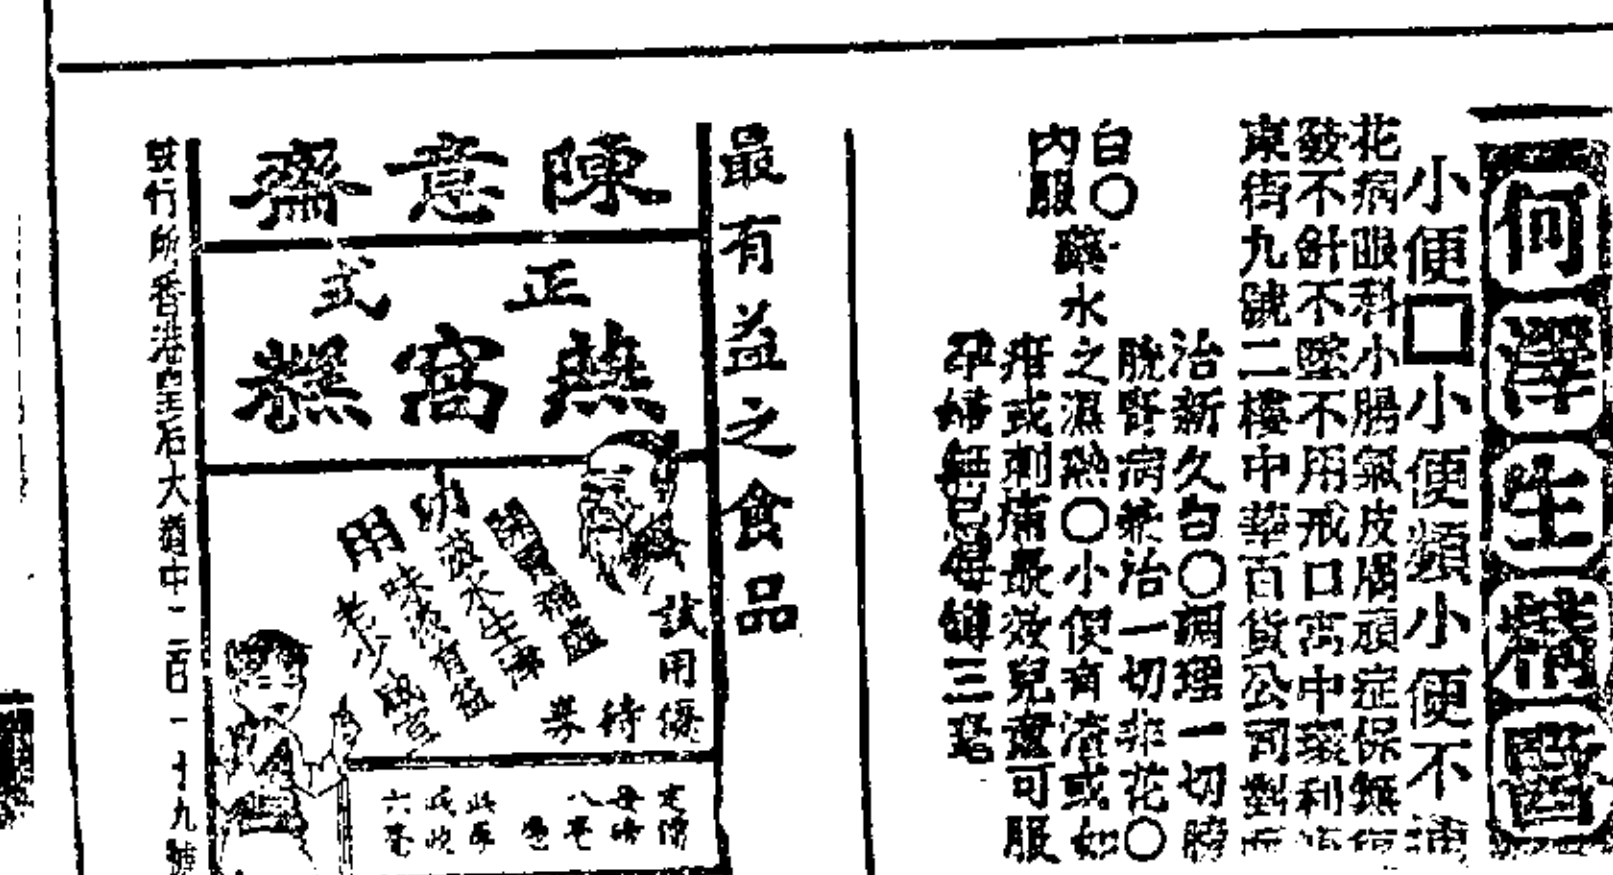 何澤生精醫
小便□小便頻小便不通
花病眼科小腸氣皮膚頑症保無
發不針不墜不用戒口寓中環利
東街九號二樓中華百貨公司對面
治新久白〇調理一切膀
胱腎病兼治一切非花〇
白〇藥水之濕熱〇小便有濇或如
內服
疳或刺痛最效兒童可服
孕婦無忌每罇三毫
最有益之食品
陳意齋
正式
燕窩糕
試用優待券
功用
味 有益
老少咸宜
定價
每磅
八毫
六毫
發行所香港皇后大道中二百一十九號